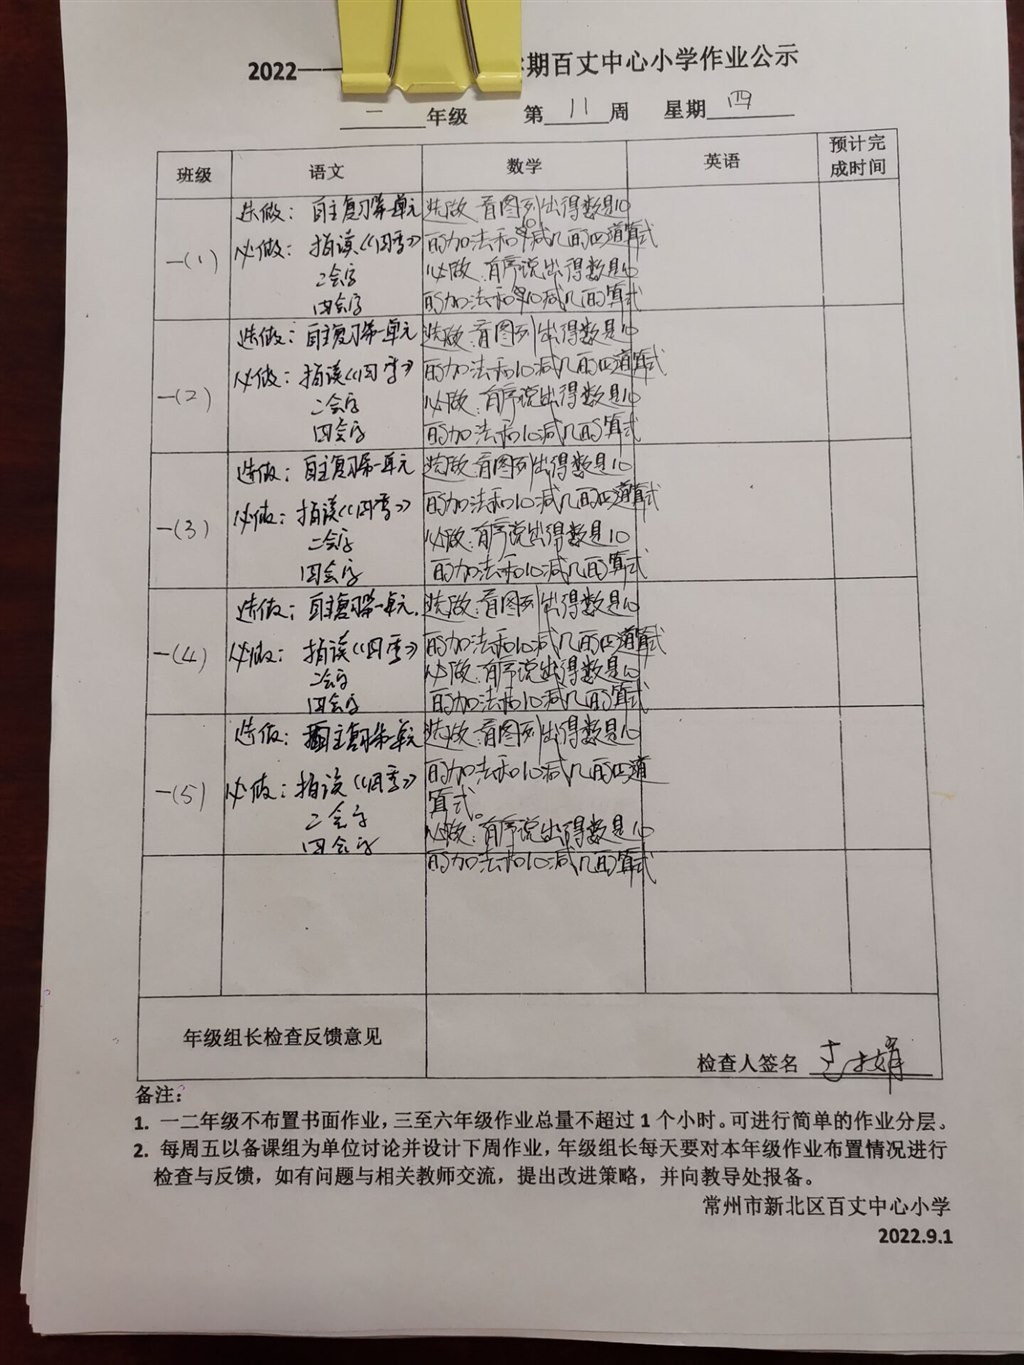 2022——期百丈中心小学作业公示
一 年级 第 11 周 星期 四
班级 语文 数学 英语 预计完成时间
一(1)
选做：自主复习第一单元
必做：指读《四季》
二会字
四会字
选做：看图列出得数是10
的加法和10减几的四道算式
必做：有序说出得数是10
的加法和10减几的算式
一(2)
选做：自主复习第一单元
必做：指读《四季》
二会字
四会字
选做：看图列出得数是10
的加法和10减几的四道算式
必做：有序说出得数是10
的加法和10减几的算式
一(3)
选做：自主复习第一单元
必做：指读《四季》
二会字
四会字
选做：看图列出得数是10
的加法和10减几的四道算式
必做：有序说出得数是10
的加法和10减几的算式
一(4)
选做：自主复习第一单元.
必做：指读《四季》
二会字
四会字
选做：看图列出得数是10
的加法和10减几的四道算式
必做：有序说出得数是10
的加法和10减几的算式
一(5)
选做：自主复习第一单元
必做：指读《四季》
二会字
四会字
选做：看图列出得数是10
的加法和10减几的四道
算式。
必做：有序说出得数是10
的加法和10减几的算式
年级组长检查反馈意见
检查人签名
备注：
1. 一二年级不布置书面作业，三至六年级作业总量不超过1个小时。可进行简单的作业分层。
2. 每周五以备课组为单位讨论并设计下周作业，年级组长每天要对本年级作业布置情况进行
检查与反馈，如有问题与相关教师交流，提出改进策略，并向教导处报备。
常州市新北区百丈中心小学
2022.9.1